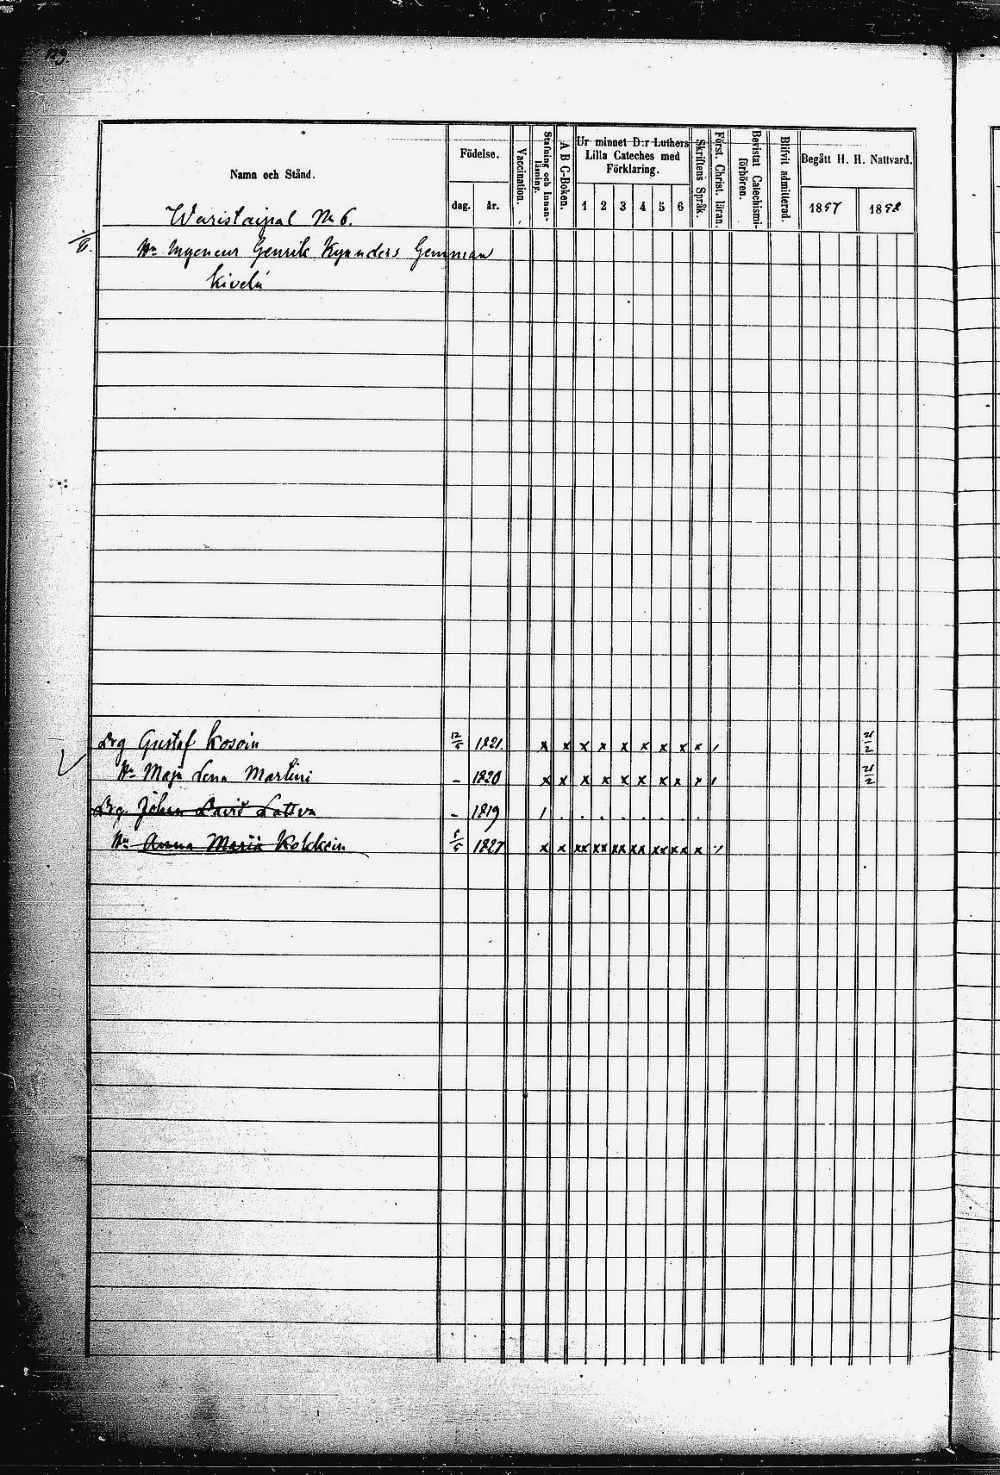 Namn och Stånd.
Födelse.
dag. år.
Vaccination.
Stafning och Innanläsning.
A B C-Boken.
Ur minnet D:r Luthers
Lilla Cateches med
Förklaring.
1 2 3 4 5 6
Skriftens Språk.
Först. Christ. läran.
Bevistat Catechismiförhören.
Blifvit admitterad.
Begått H. H. Nattvard.
1857 1858
No 6.
Kivelä
Drg Gustaf 12/5 1821 x x x x x x x x x / 21/2
Hu Maja Lena Martini - 1820 x x x x x x x x x / 21/2
Drg Johan David - 1819 /
Hu Anna Maria Kokkein 1827 x x xx xx xx xx xx xx x